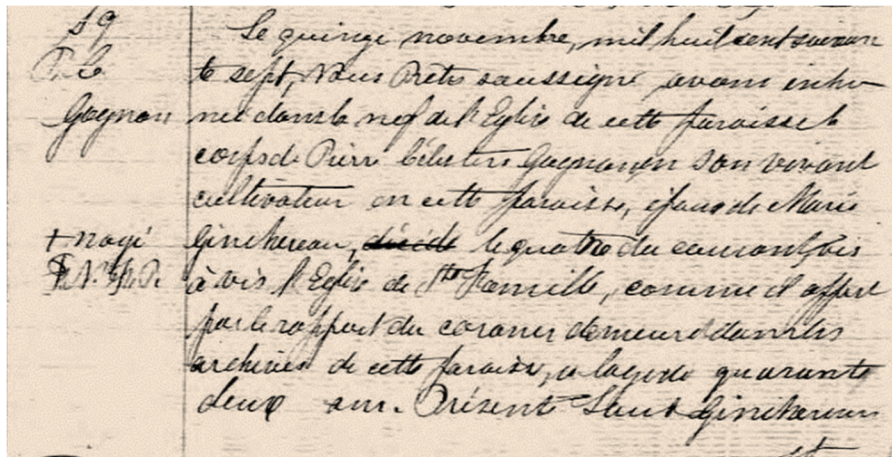 S9
P. C.
Gagnon
Le quinze novembre, mil huit cent soixan
te sept, Nous Prêtre soussigné avons inhu
mé dans la nef de l'Eglise de cette paroisse le
corps de Pierre Célestin Gagnon en son vivant
cultivateur en cette paroisse, époux de Marie
Ginchereau, décédé le quatre du courant, vis
+ noyé
à vis l'Eglise de Ste Famille, comme il appert
par le rapport du coroner demeuré dans les
archives de cette paroisse, a l'age de quarante
deux ans. Présents Ginchereau